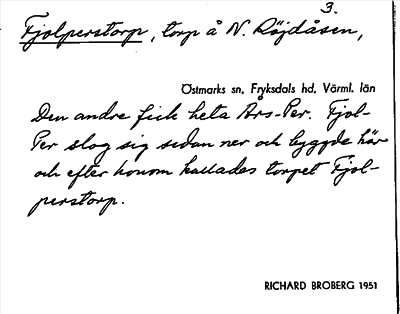 3.
Fjolperstorp, torp å N. Röjdåsen,
Östmarks sn. Fryksdals hd. Värml. län
Den andre fick heta Års-Per. Fjol-
Per slog sig sedan ner och byggde här
och efter honom kallades torpet Fjol-
perstorp.
RICHARD BROBERG 1951